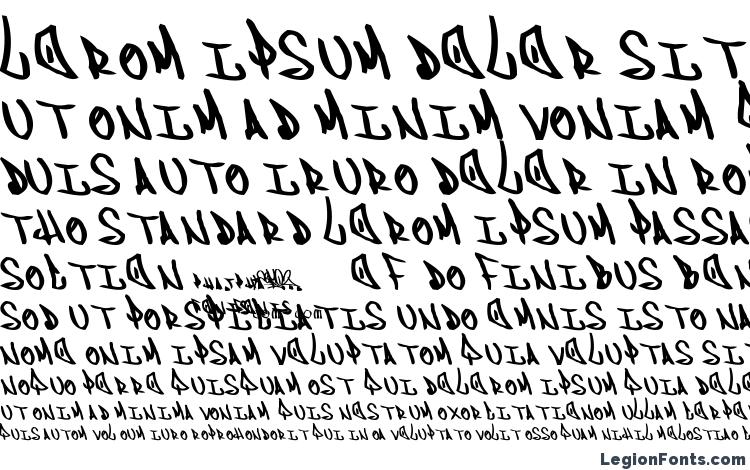 LOREM IPSUM DOLOR SIT
UT ENIM AD MINIM VENIAM
DUIS AUTE IRURE DOLOR IN RE
THE STANDARD LOREM IPSUM PASSA
SECTION OF DE FINIBUS BON
SED UT PERSPICIATIS UNDE OMNIS ISTE NA
NEMO ENIM IPSAM VOLUPTATEM QUIA VOLUPTAS SIT
NEQUE PORRO QUISQUAM EST QUI DOLOREM IPSUM QUIA DOLO
UT ENIM AD MINIMA VENIAM QUIS NOSTRUM EXERCITATIONEM ULLAM CORPO
QUIS AUTEM VEL EUM IURE REPREHENDERIT QUI IN EA VOLUPTATE VELIT ESSE QUAM NIHIL MOLESTIAE
LegionFonts.com